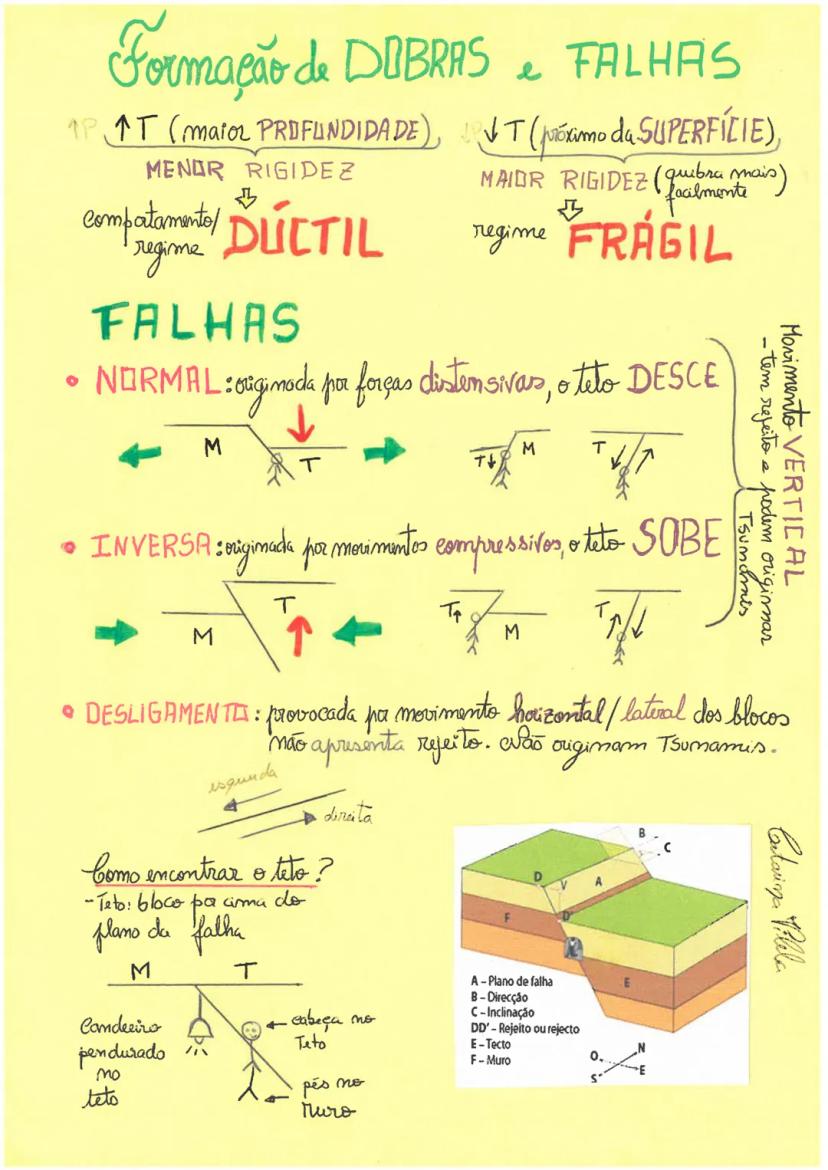 Formação de DOBRAS e FALHAS
↑P ↑T (maior PROFUNDIDADE)
MENOR RIGIDEZ
comportamento/
regime DÚCTIL
↓P ↓T (próximo da SUPERFÍCIE)
MAIOR RIGIDEZ (quebra mais
facilmente)
regime FRÁGIL
FALHAS
• NORMAL: originada por forças distensivas, o teto DESCE
M
T
T↓
M
T
• INVERSA: originada por movimentos compressivos, o teto SOBE
T
M
T↑
M
T
Movimento VERTICAL
- tem rejeito e podem originar
Tsunamis
• DESLIGAMENTO: provocada por movimento horizontal/lateral dos blocos
não apresenta rejeito. Não originam Tsunamis.
esquerda
direita
Como encontrar o teto?
- Teto: bloco por cima do
plano da falha
M T
Candeeiro
pendurado
no
teto
cabeça no
Teto
pés no
Muro
B
C
D
V
A
F
D'
E
A – Plano de falha
B – Direcção
C – Inclinação
DD' – Rejeito ou rejecto
E – Tecto
F – Muro
N
O
E
S
Catarina